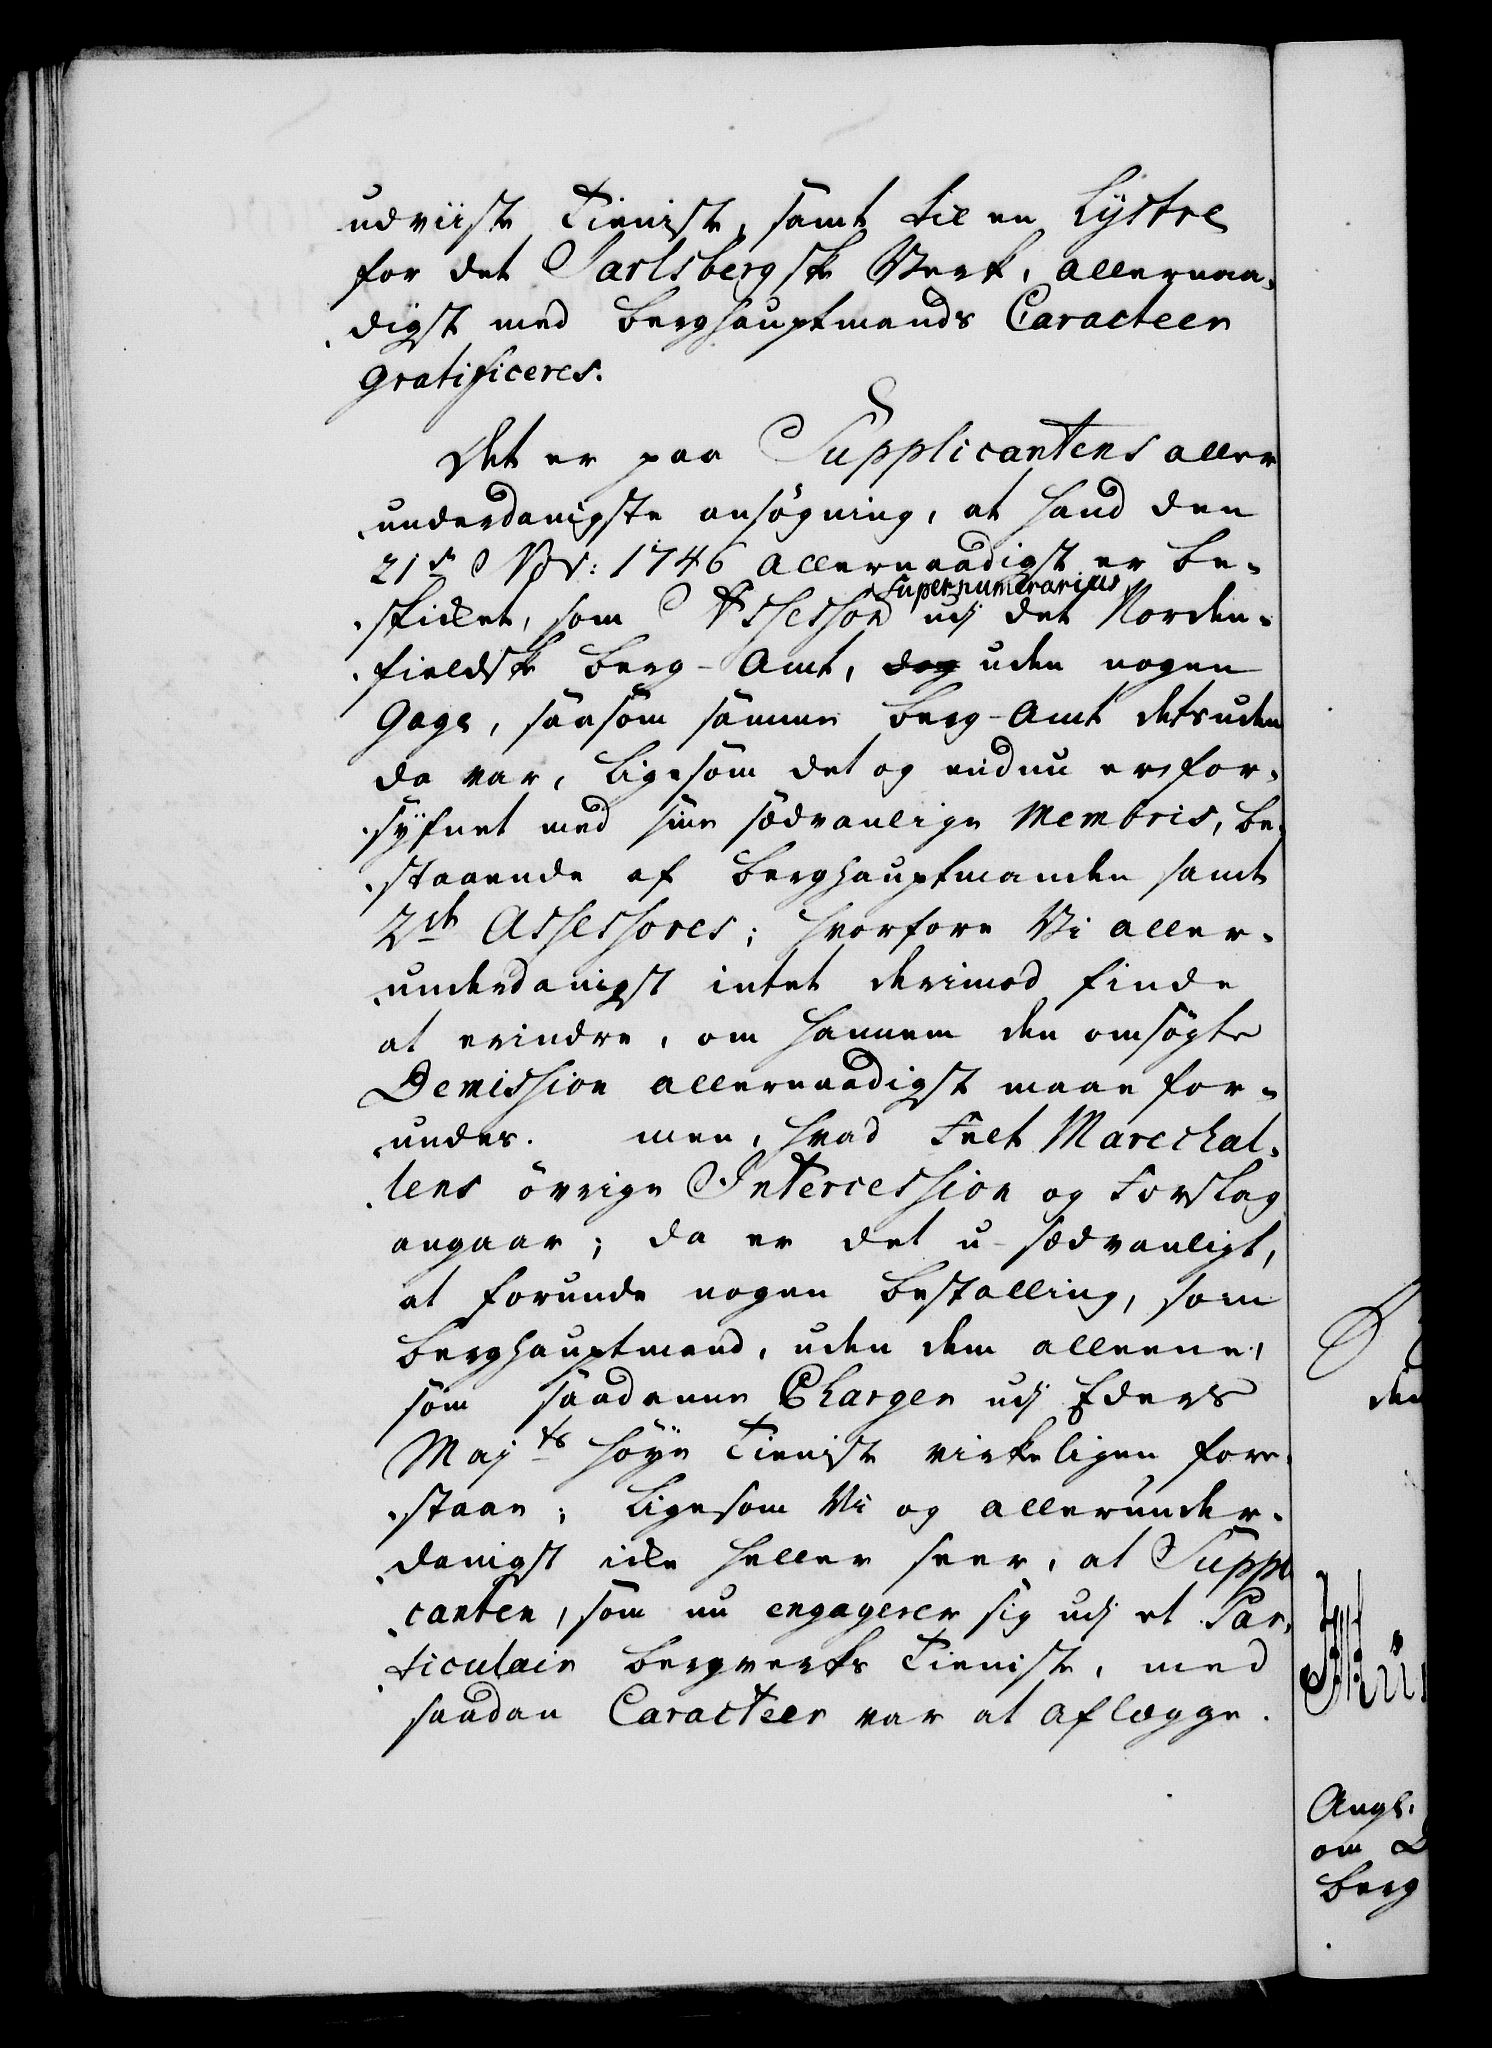 udviiste Tieniste, samt til en Lystre
for det Jarlsbergske Verk, allernaa-
digst med Berghauptmands Caracteer
gratificeres.
Det er paa Supplicantens aller
underdanigste ansøgning, at hand den
21de 1746 allernaadigst er be-
supernumerarius
skikket, som Assessor udj det Norden-
fieldske Berg-Amt, dog uden nogen
Gage, saasom samme Berg-Amt desuden
da var, ligesom det og endnu er for-
syfnet med sine sædvanlige Membris, be-
staaende af Berghauptmanden samt
2de Assessores; hvorfore Vi aller-
underdanigst intet derimod finde
at erindre, om hannem den omsøgte
Demission allernaadigst maae for-
undes. men, hvad Felt Marechal-
lens øvrige Intercession og Forslag
angaar; da er det u-sædvanligt,
at forunde nogen Bestalling, som
Berghauptmand, uden dem alleene,
som saadanne Charger udj Eders
Majts høye Tieniste virkeligen fore-
staae; ligesom Vi og allerunder-
danigst ikke heller seer, at Suppli
canten, som nu engagerer sig udj et Par-
ticulair Bergverks Tieniste, med
saadan Caracteer var at aflægge.
den
Angl.
om
Berg